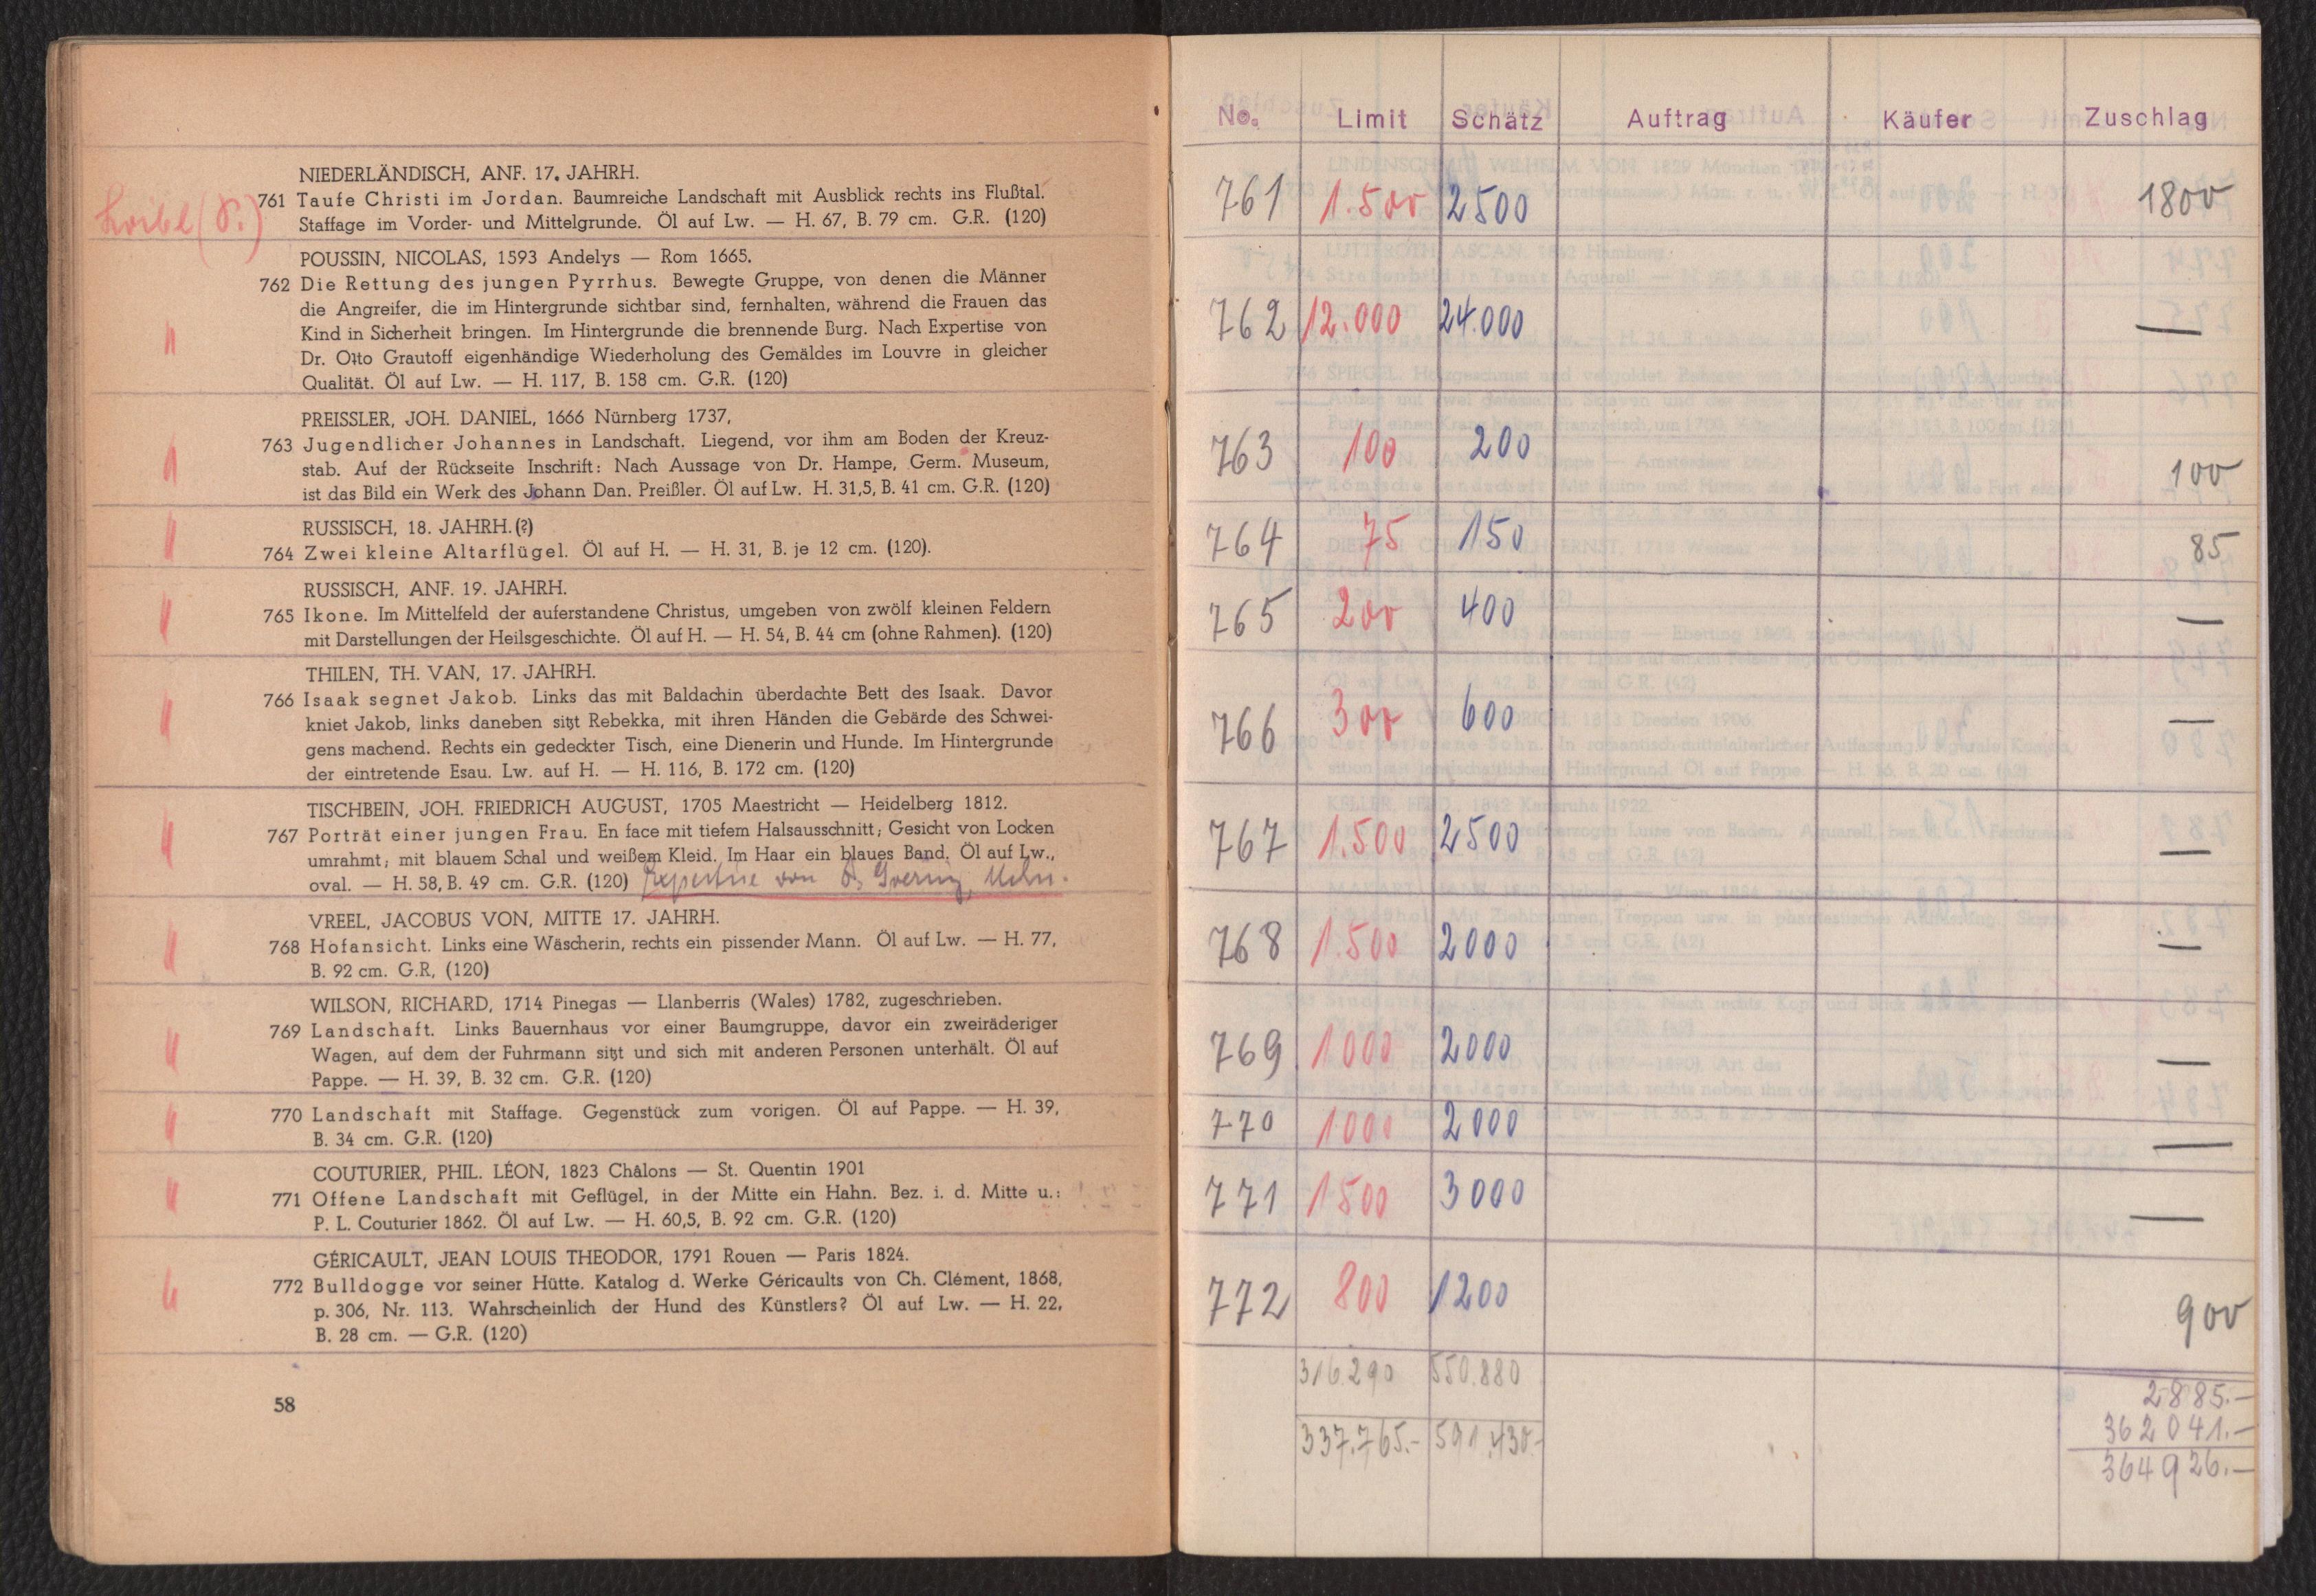 NIEDERLÄNDISCH, ANF. 17. JAHRH.
761 Taufe Christi im Jordan. Baumreiche Landschaft mit Ausblick rechts ins Flußtal.
Staffage im Vorder- und Mittelgrunde. Öl auf Lw. — H. 67, B. 79 cm. G.R. (120)
POUSSIN, NICOLAS, 1593 Andelys — Rom 1665.
762 Die Rettung des jungen Pyrrhus. Bewegte Gruppe, von denen die Männer
die Angreifer, die im Hintergrunde sichtbar sind, fernhalten, während die Frauen das
Kind in Sicherheit bringen. Im Hintergrunde die brennende Burg. Nach Expertise von
Dr. Otto Grautoff eigenhändige Wiederholung des Gemäldes im Louvre in gleicher
Qualität. Öl auf Lw. — H. 117, B. 158 cm. G.R. (120)
PREISSLER, JOH. DANIEL, 1666 Nürnberg 1737,
763 Jugendlicher Johannes in Landschaft. Liegend, vor ihm am Boden der Kreuz-
stab. Auf der Rückseite Inschrift: Nach Aussage von Dr. Hampe, Germ. Museum,
ist das Bild ein Werk des Johann Dan. Preißler. Öl auf Lw. H. 31,5, B. 41 cm. G.R. (120)
RUSSISCH, 18. JAHRH. (?)
764 Zwei kleine Altarflügel. Öl auf H. — H. 31, B. je 12 cm. (120).
RUSSISCH, ANF. 19. JAHRH.
765 Ikone. Im Mittelfeld der auferstandene Christus, umgeben von zwölf kleinen Feldern
mit Darstellungen der Heilsgeschichte. Öl auf H. — H. 54, B. 44 cm (ohne Rahmen). (120)
THILEN, TH. VAN, 17. JAHRH.
766 Isaak segnet Jakob. Links das mit Baldachin überdachte Bett des Isaak. Davor
kniet Jakob, links daneben sitzt Rebekka, mit ihren Händen die Gebärde des Schwei-
gens machend. Rechts ein gedeckter Tisch, eine Dienerin und Hunde. Im Hintergrunde
der eintretende Esau. Lw. auf H. — H. 116, B. 172 cm. (120)
TISCHBEIN, JOH. FRIEDRICH AUGUST, 1705 Maestricht — Heidelberg 1812.
767 Porträt einer jungen Frau. En face mit tiefem Halsausschnitt; Gesicht von Locken
umrahmt; mit blauem Schal und weißem Kleid. Im Haar ein blaues Band. Öl auf Lw.,
oval. — H. 58, B. 49 cm. G.R. (120) Expertise von Dr.
VREEL, JACOBUS VON, MITTE 17. JAHRH.
768 Hofansicht. Links eine Wäscherin, rechts ein pissender Mann. Öl auf Lw. — H. 77,
B. 92 cm. G.R, (120)
WILSON, RICHARD, 1714 Pinegas — Llanberris (Wales) 1782, zugeschrieben.
769 Landschaft. Links Bauernhaus vor einer Baumgruppe, davor ein zweiräderiger
Wagen, auf dem der Fuhrmann sitzt und sich mit anderen Personen unterhält. Öl auf
Pappe. — H. 39, B. 32 cm. G.R. (120)
770 Landschaft mit Staffage. Gegenstück zum vorigen. Öl auf Pappe. — H. 39,
B. 34 cm. G.R. (120)
COUTURIER, PHIL. LÉON, 1823 Châlons — St. Quentin 1901
771 Offene Landschaft mit Geflügel, in der Mitte ein Hahn. Bez. i. d. Mitte u.:
P. L. Couturier 1862. Öl auf Lw. — H. 60,5, B. 92 cm. G.R. (120)
GÉRICAULT, JEAN LOUIS THEODOR, 1791 Rouen — Paris 1824.
772 Bulldogge vor seiner Hütte. Katalog d. Werke Géricaults von Ch. Clément, 1868,
p. 306, Nr. 113. Wahrscheinlich der Hund des Künstlers? Öl auf Lw. — H. 22,
B. 28 cm. — G.R. (120)
58
No. Limit Schätz Auftrag Käufer Zuschlag
761 1.500 2500 1800
762 12.000 24.000 —
763 100 200 100
764 75 150 85
765 200 400 —
766 300 600 —
767 1.500 2500 —
768 1.500 2000 —
769 1000 2000 —
770 1000 2000 —
771 1500 3000 —
772 800 1200 900
316.290 550.880 2885.-
362041.-
337.765.- 591.430.- 364926.-